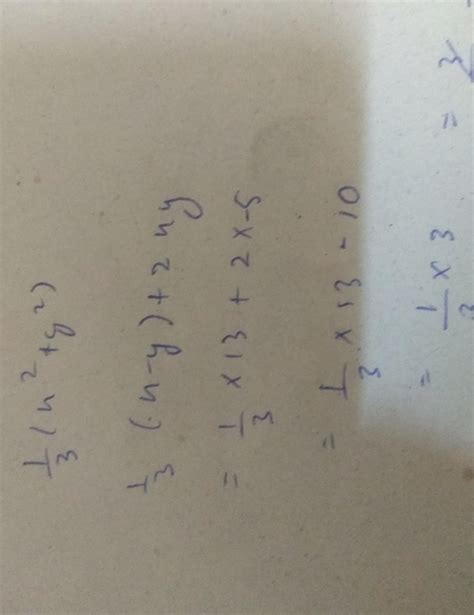 1/3 (x² + y²)
1/3 (x-y) + 2xy
= 1/3 × 13 + 2 × -5
= 1/3 × 13 - 10
= 1/3 × 3 =